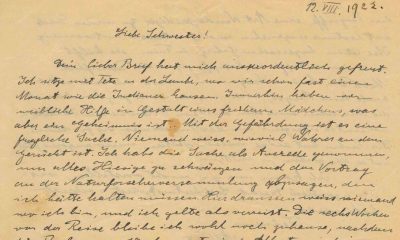 12. VIII. 1922.
Liebe Schwester!
Dein lieber Brief hat mich ausserordentlich gefreut.
Ich sitze mit Tete in der Laube, wo wir schon fast einen
Monat wie die Indianer hausen. Immerhin haben wir
weibliche Hilfe in Gestalt eines Mädchens, was
aber ein Geheimnis ist. Mit der Gefährdung ist es eine
fragliche Sache. Niemand weiss, wieviel Wahres an dem
Gerücht ist. Ich habe die Sache als Ausrede genommen,
um alles Hiesige zu schwänzen und den Vortrag
an der Naturforscherversammlung abzusagen, den
ich hätte halten müssen. Hier draussen weiss niemand
wo ich bin, und ich gelte als verreist. Die sechs Wochen
vor der Reise bleibe ich wohl noch zuhause, nachdem